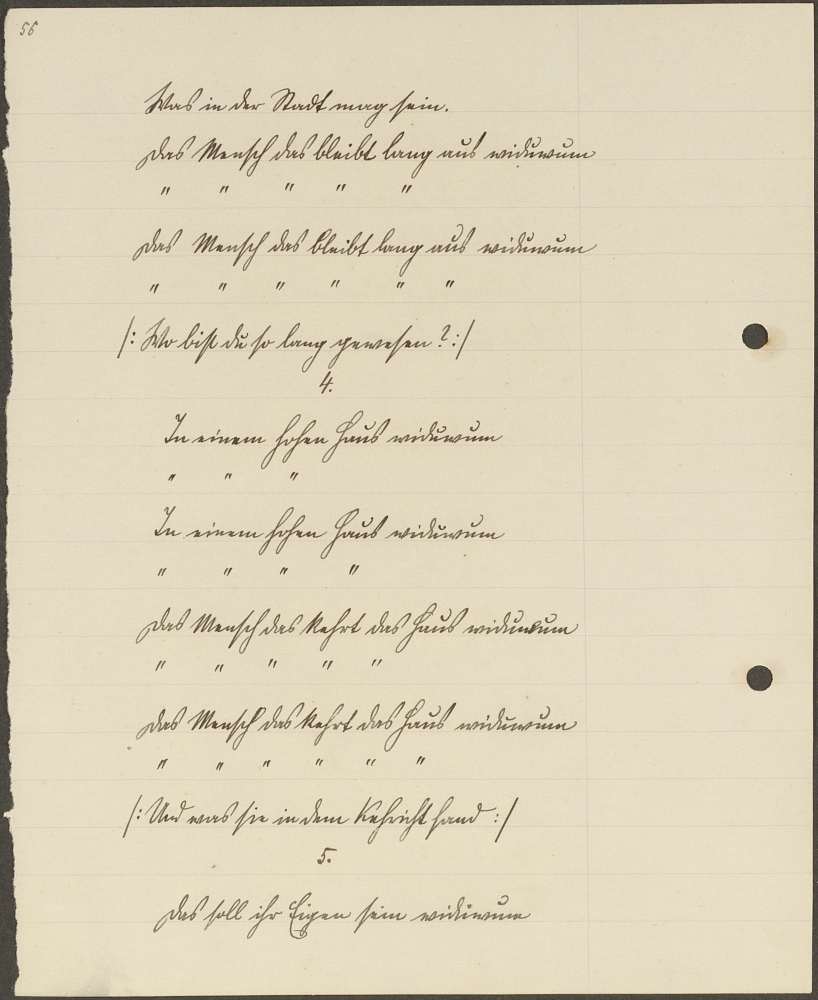 56
Was in der Stadt mag sein.
Das Mensch das bleibt lang aus widuwum
" " " " "
Das Mensch das bleibt lang aus widuwum
" " " " " "
/: Wo bist du so lang gewesen? :/
4.
In einem hohen Haus widuwum
" " "
In einem hohen Haus widuwum
" " " "
Das Mensch das kehrt das Haus widuwum
" " " " "
Das Mensch das kehrt das Haus widuwum
" " " " " "
/: Und was sie in dem Kehricht fand :/
5.
Das soll ihr Eigen sein widuwum